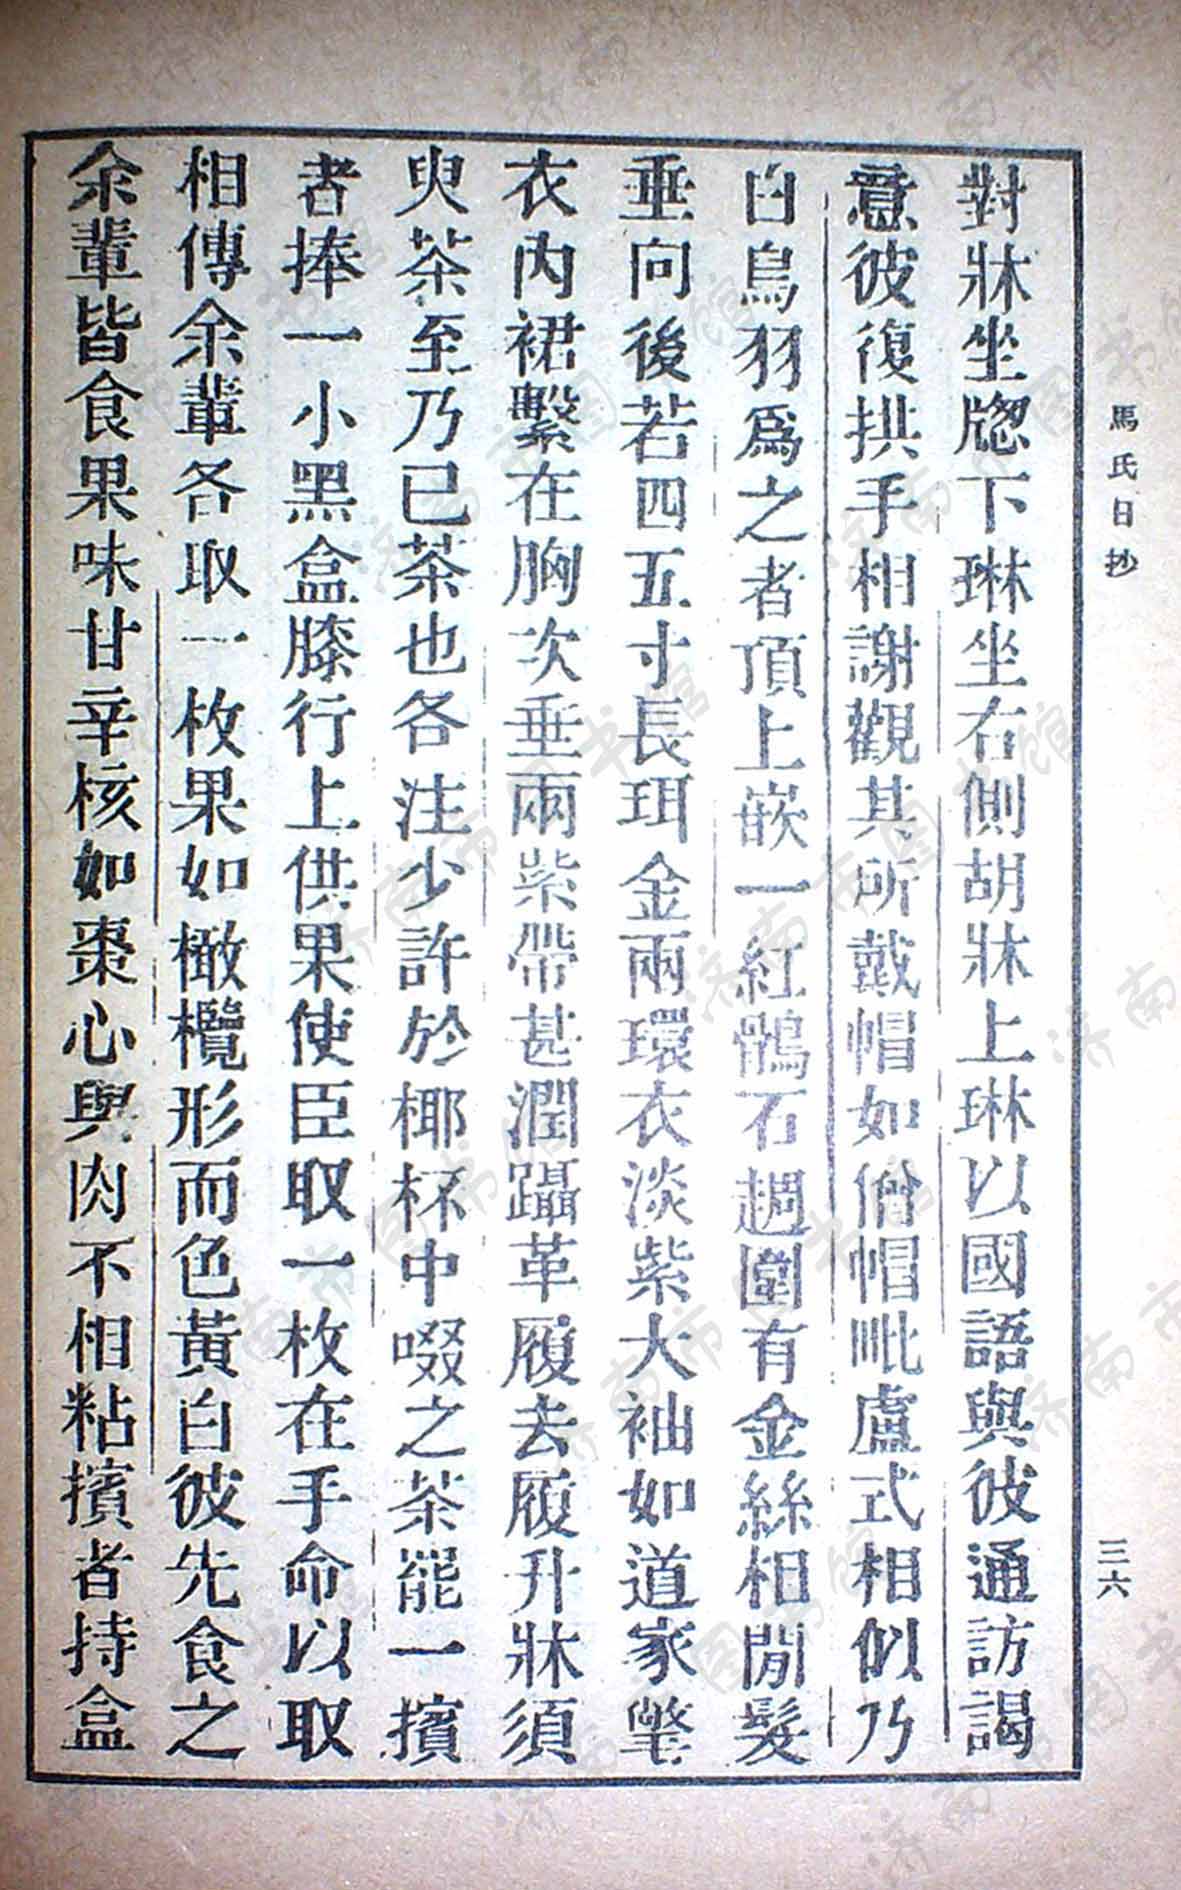 馬氏日抄
三六
對牀坐牎下琳坐右側胡牀上琳以國語與彼通訪謁
意彼復拱手相謝觀其所戴帽如僧帽毗盧式相似乃
白鳥羽爲之者頂上嵌一紅鶻石週圍有金絲相閒髮
垂向後若四五寸長珥金兩環衣淡紫大袖如道家氅
衣內裙繫在胸次垂兩紫帶甚潤躡革履去履升牀須
臾茶至乃已茶也各注少許於椰杯中啜之茶罷一擯
者捧一小黑盒膝行上供果使臣取一枚在手命以取
相傳余輩各取一枚果如橄欖形而色黃白彼先食之
余輩皆食果味甘辛核如棗心與肉不相粘擯者持盒